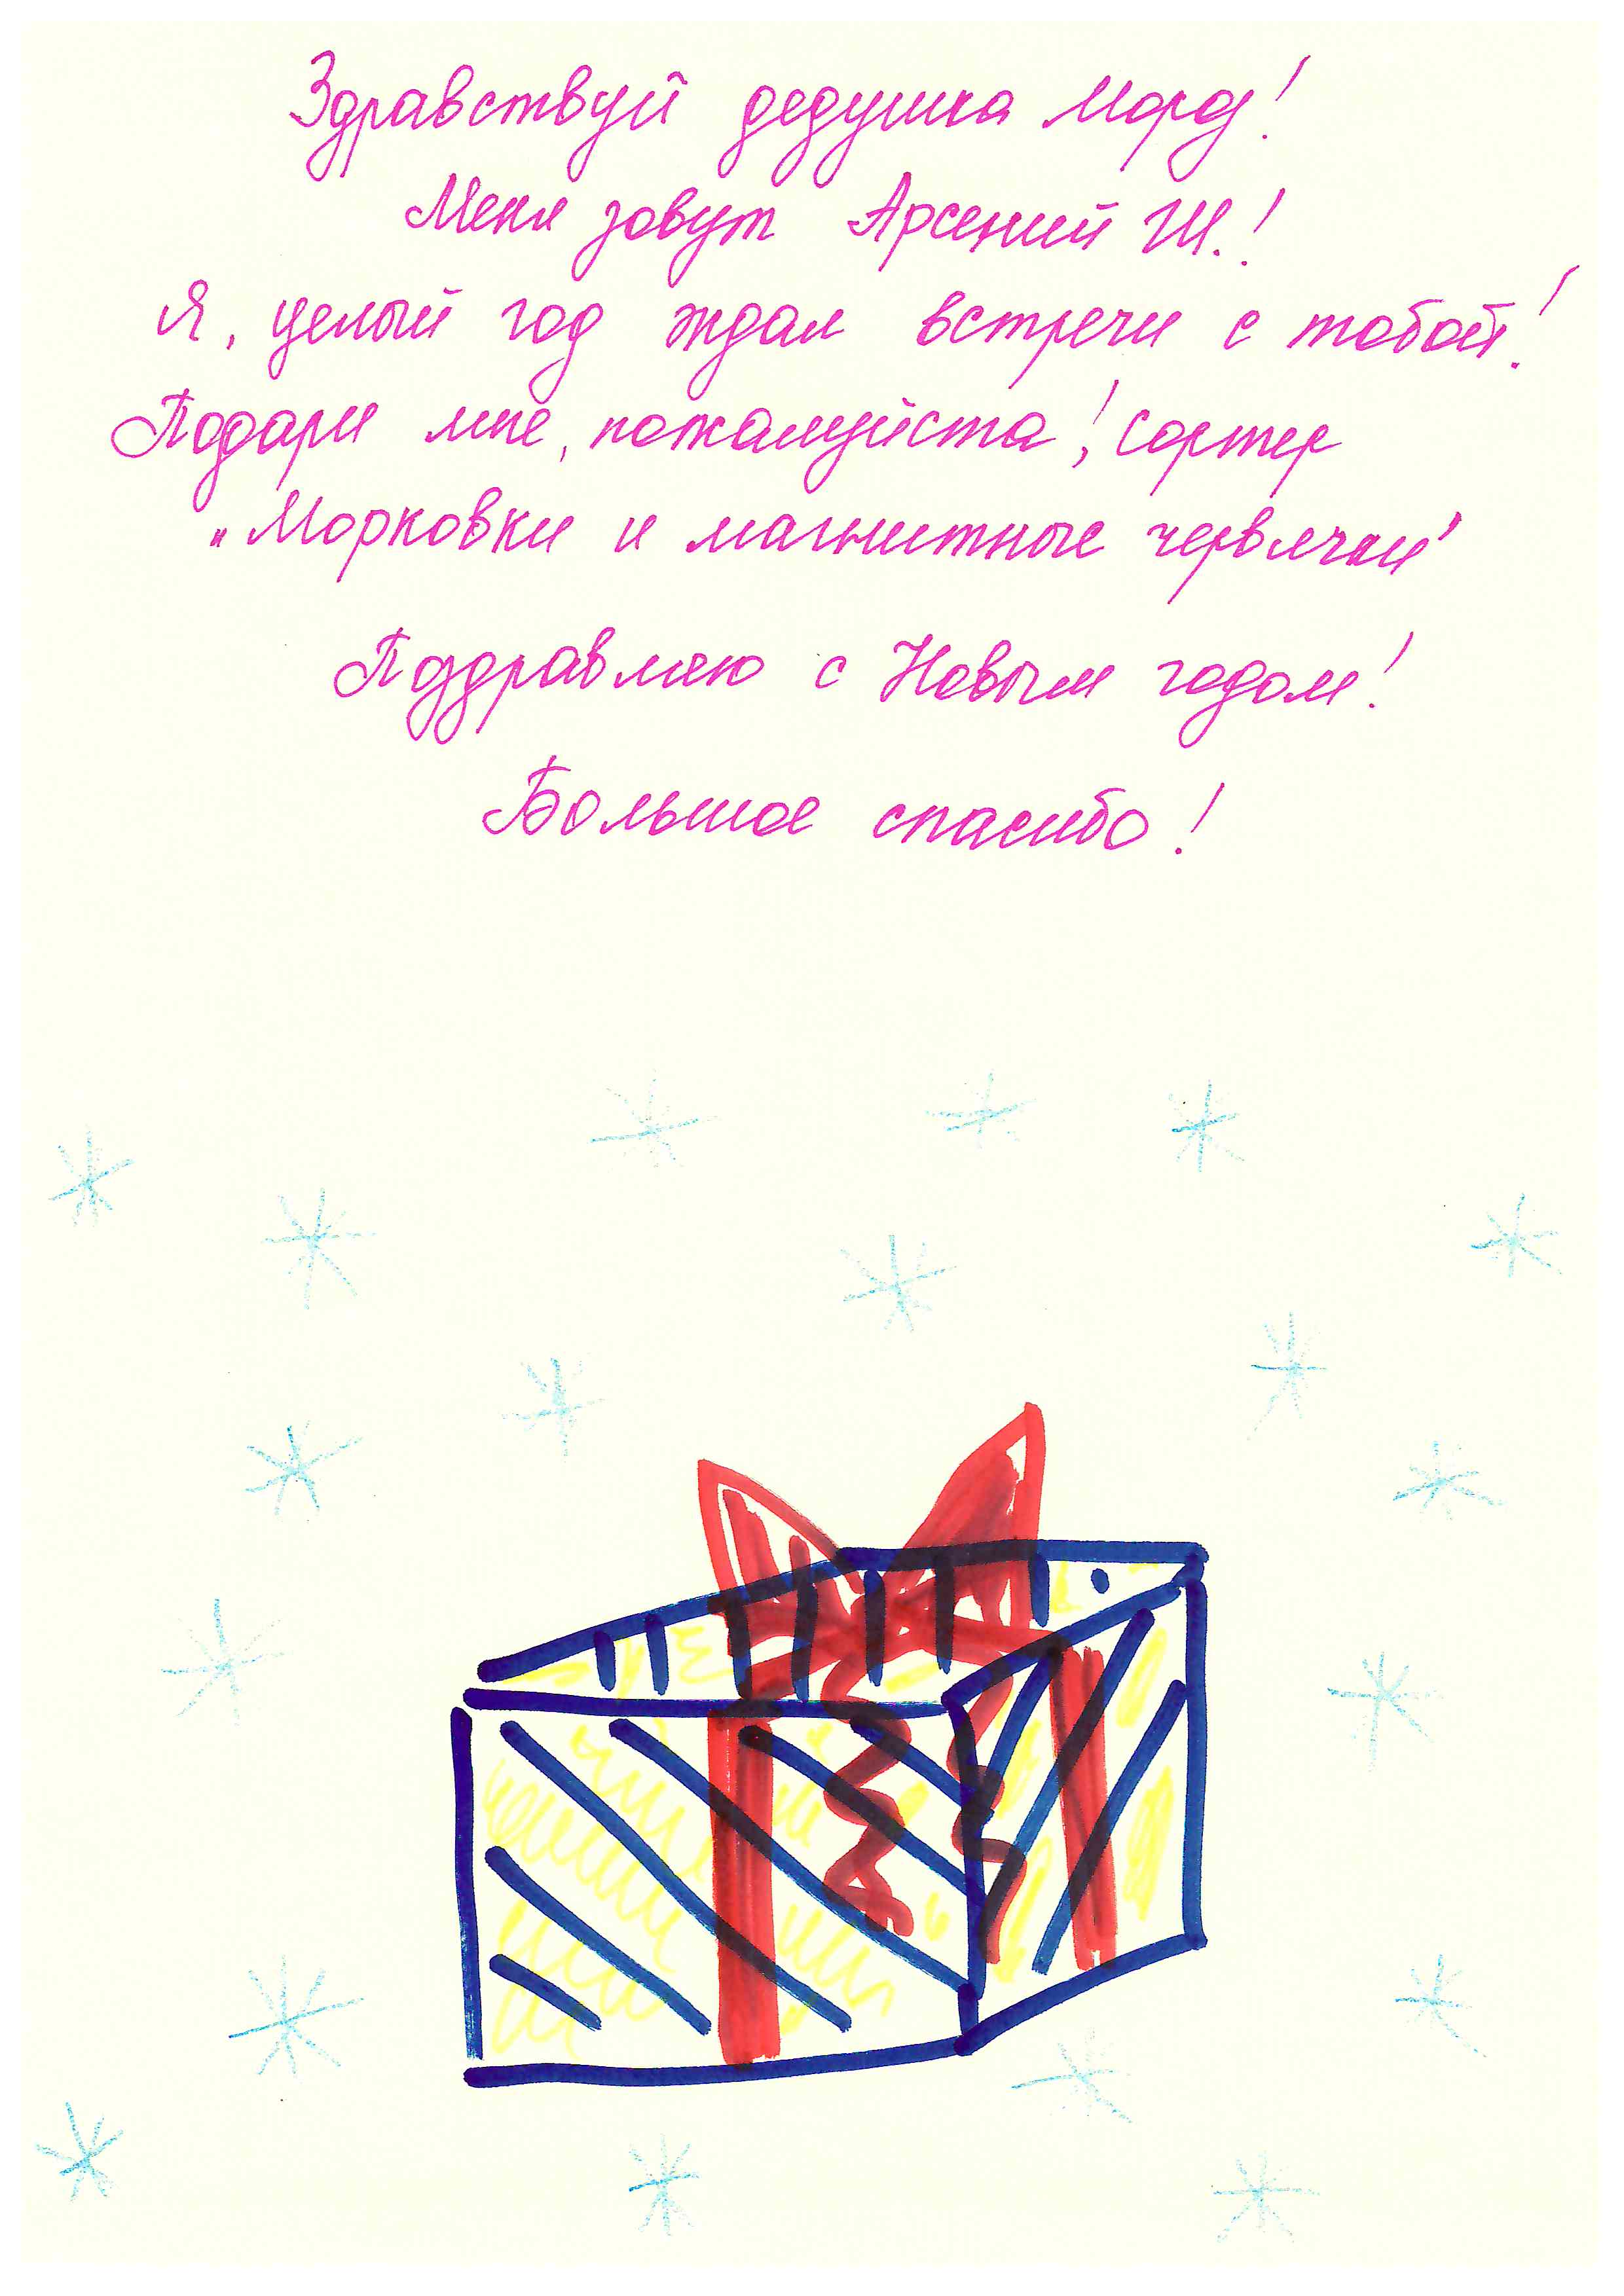 Здравствуй дедушка Мороз!
Меня зовут Арсений Ш.!
Я, целый год ждал встречи с тобой!
Подари мне, пожалуйста! Сортер
„Морковки и магнитные червячки"
Поздравляю с Новым годом!
Большое спасибо!